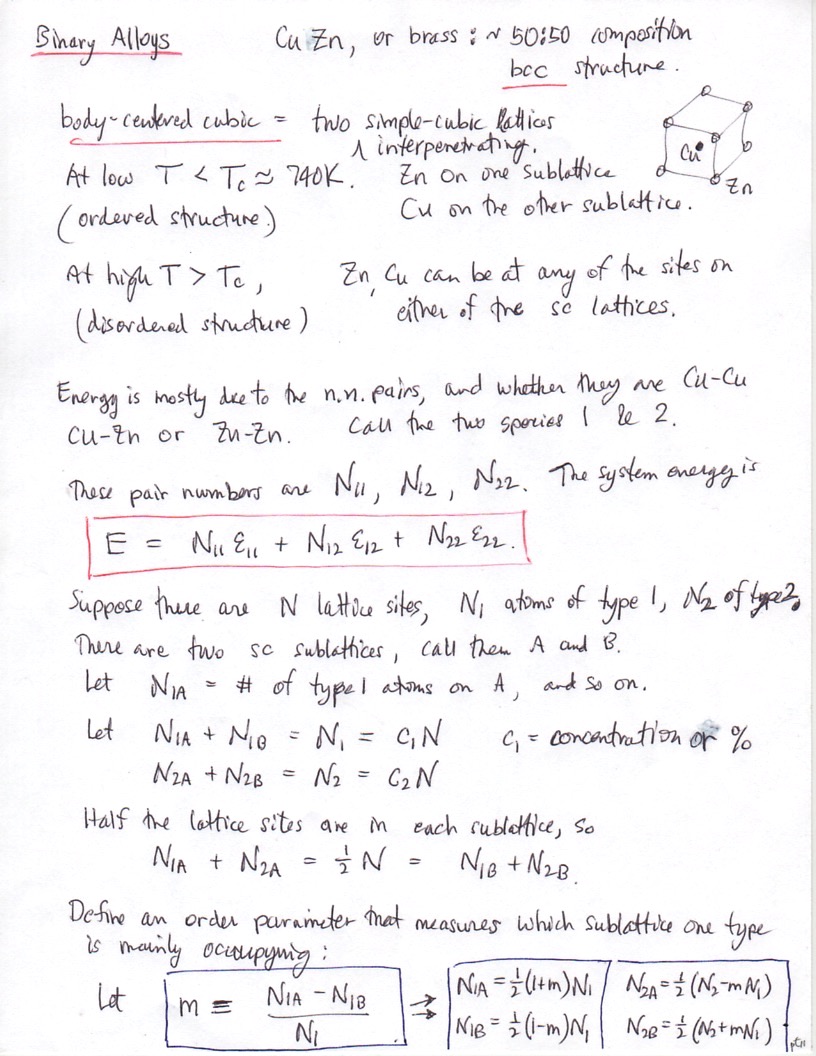 Binary Alloys Cu Zn, or brass : ~ 50:50 composition
bcc structure.
body-centered cubic = two simple-cubic lattices
∧ interpenetrating.
At low T < Tc ≈ 740K. Zn on one sublattice
(ordered structure.) Cu on the other sublattice.
Cu
Zn
At high T > Tc, Zn, Cu can be at any of the sites on
(disordered structure) either of the sc lattices.
Energy is mostly due to the n.n. pairs, and whether they are Cu-Cu
Cu-Zn or Zn-Zn. Call the two species 1 & 2.
These pair numbers are N11, N12, N22. The system energy is
E = N11 ε11 + N12 ε12 + N22 ε22.
Suppose there are N lattice sites, N1 atoms of type 1, N2 of type 2.
There are two sc sublattices, call them A and B.
Let N1A = # of type 1 atoms on A, and so on.
Let N1A + N1B = N1 = C1N C1 = concentration or %
N2A + N2B = N2 = C2N
Half the lattice sites are in each sublattice, so
N1A + N2A = ½ N = N1B + N2B.
Define an order parameter that measures which sublattice one type
is mainly occupying:
Let m ≡ (N1A - N1B) / N1 ⇒ N1A = ½(1+m)N1 N2A = ½(N2-mN1)
N1B = ½(1-m)N1 N2B = ½(N2+mN1)